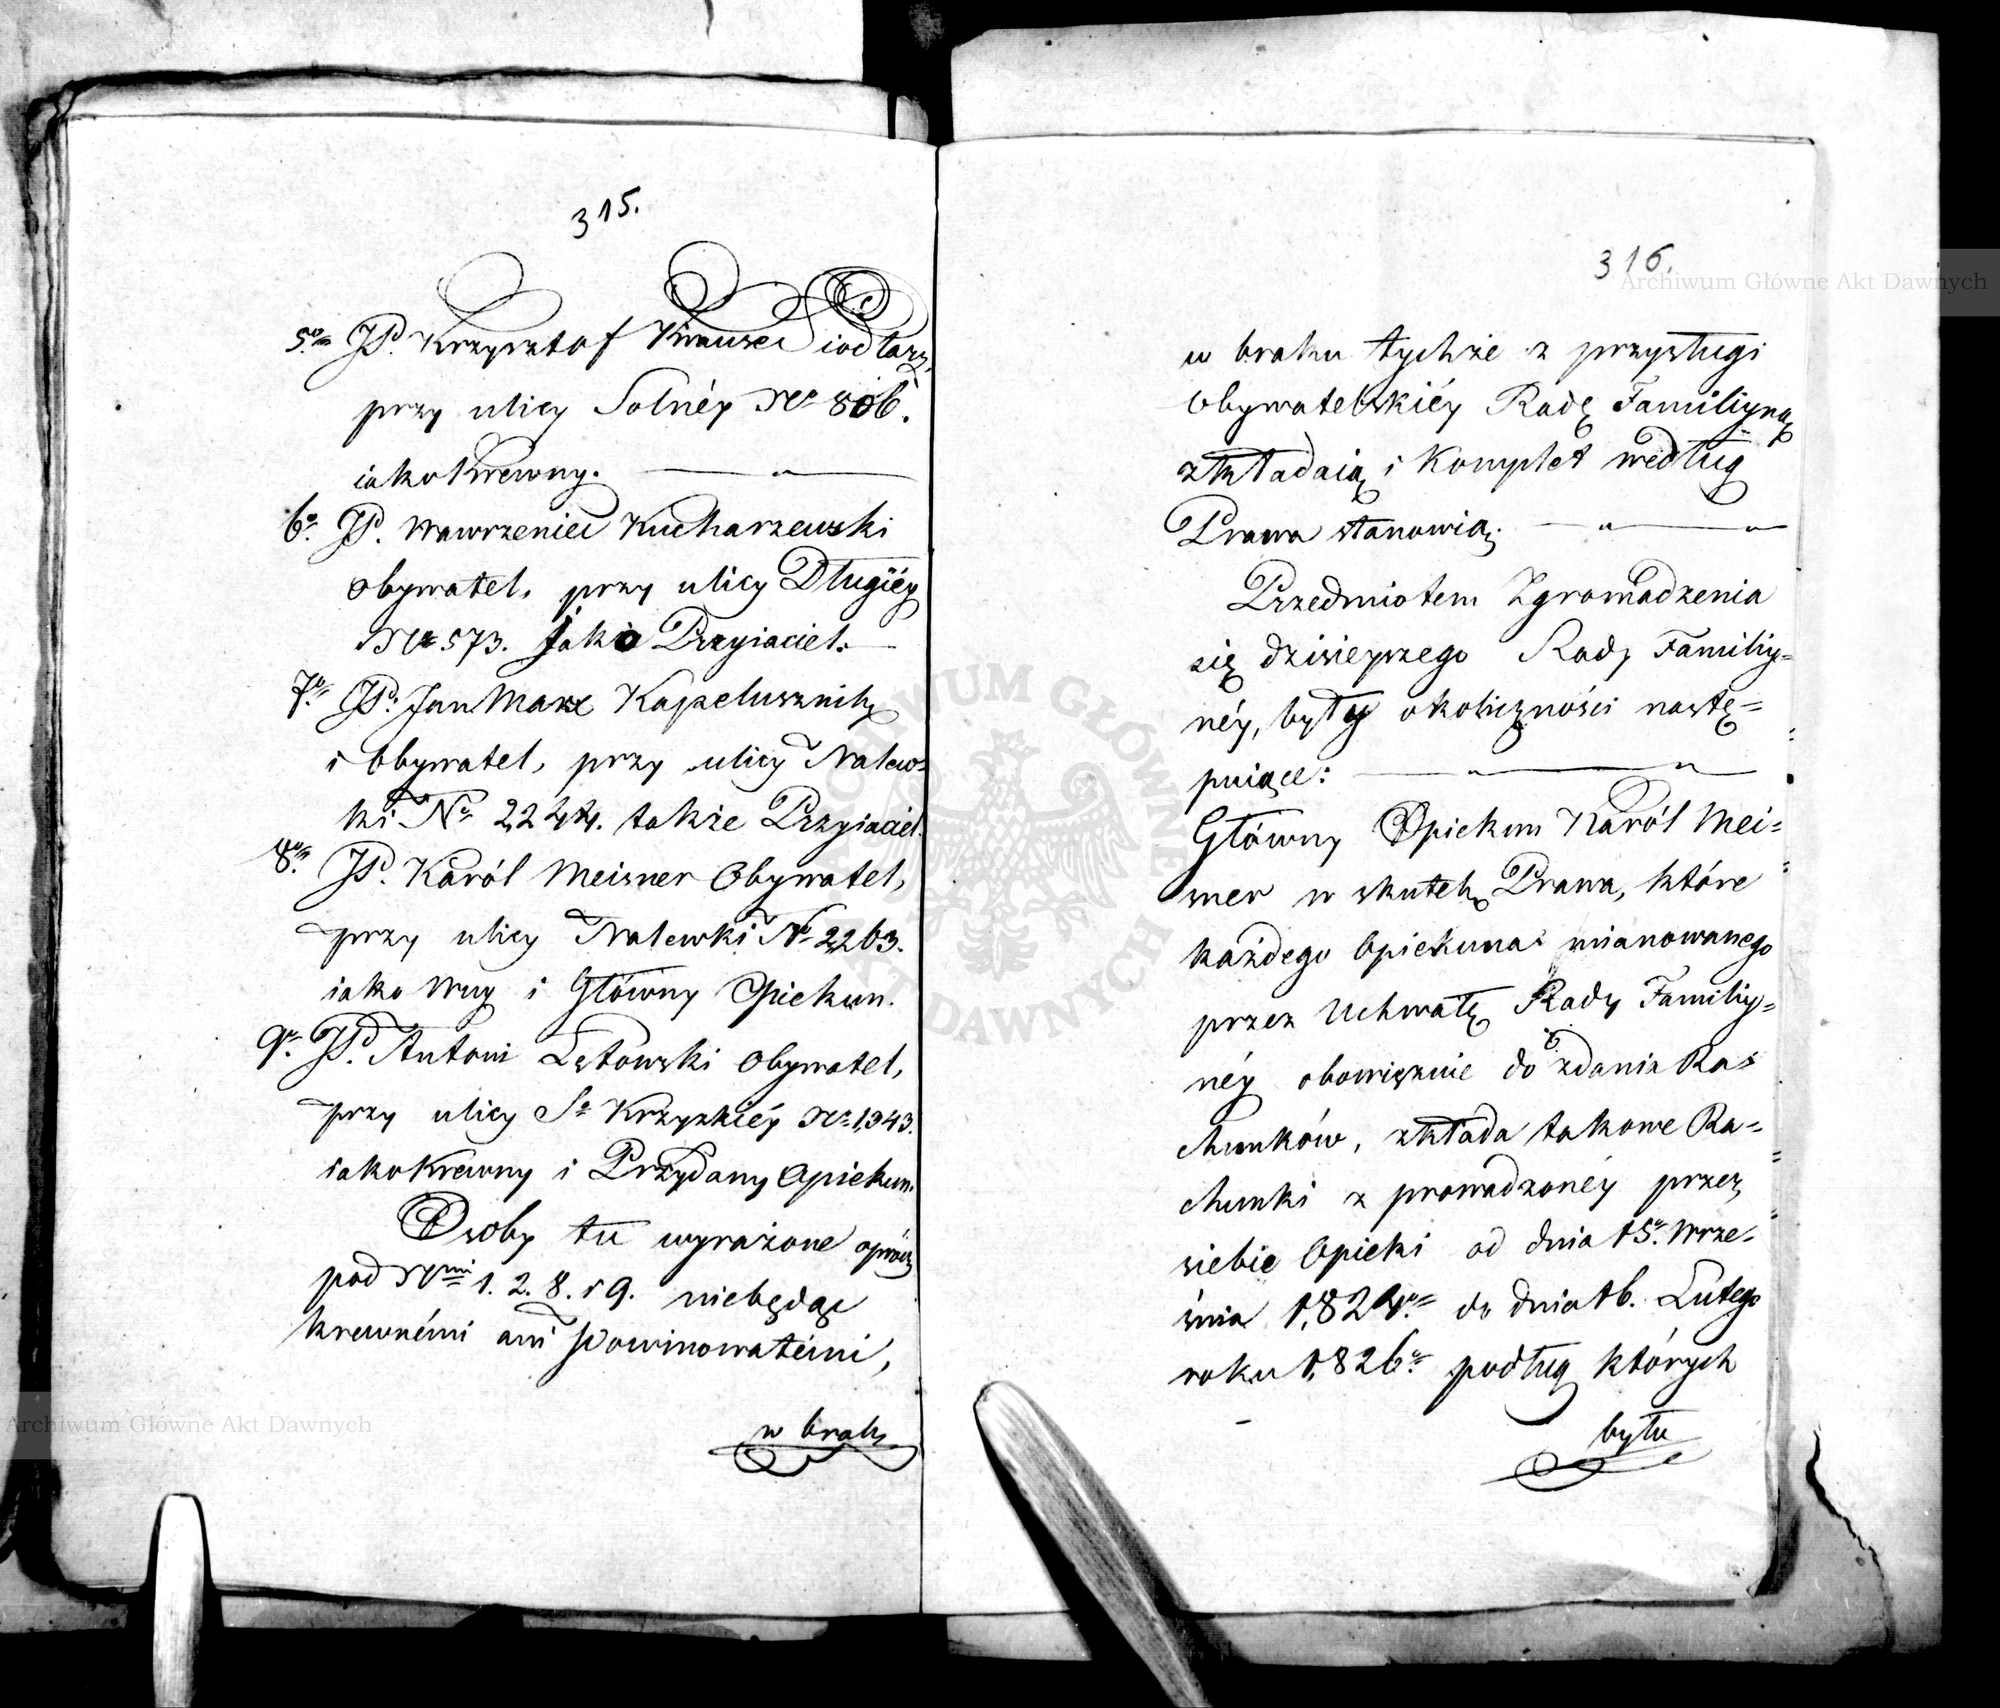 315.
5o JP. Krzysztof Krause Siodlarz,
przy ulicy Solnéy No 806.
iako Krewny.
6o JP. Wawrzeniec Kucharzewski
Obywatel, przy ulicy Długiéy
No 573. Jako Przyiaciel.
7o JP. Jan Marx Kapelusznik
i Obywatel, przy ulicy Nalew=
ki No 2244. także Przyiaciel.
8o JP. Karól Meisner Obywatel,
przy ulicy Nalewki No 2263.
iako Wuy i Główny Opiekun.
9o JP. Antoni Lętowski Obywatel,
przy ulicy So Krzyzkiéy No 1,343.
iako Krewny i Przydany Opiekun.
Osoby tu wyrażone oprócz
pod Nmi 1. 2. 8. i 9. niebędąc
krewnémi ani Powinowatémi,
w braku
316.
w braku tychże z przysługi
Obywatelskiéy Radę Familiyną
składaią i Komplet według
Prawa stanowią.
Przedmiotem Zgromadzenia
się dzisieyszego Rady Familiy=
néy, były okoliczności nastę=
puiące:
Główny Opiekun Karól Mei=
sner w skutek Prawa, które
każdego Opiekuna mianowanego
przez Uchwałę Rady Familiy=
néy obowięzuie do zdania Ra=
chunków, składa takowe Ra=
chunki z prowadzonéy przez
siebie Opieki od dnia 15o Wrze=
śnia 1,824o do dnia 16. Lutego
roku 1,826o podług których
było
Archiwum Główne Akt Dawnych
Archiwum Główne Akt Dawnych
ARCHIWUM GŁÓWNE AKT DAWNYCH